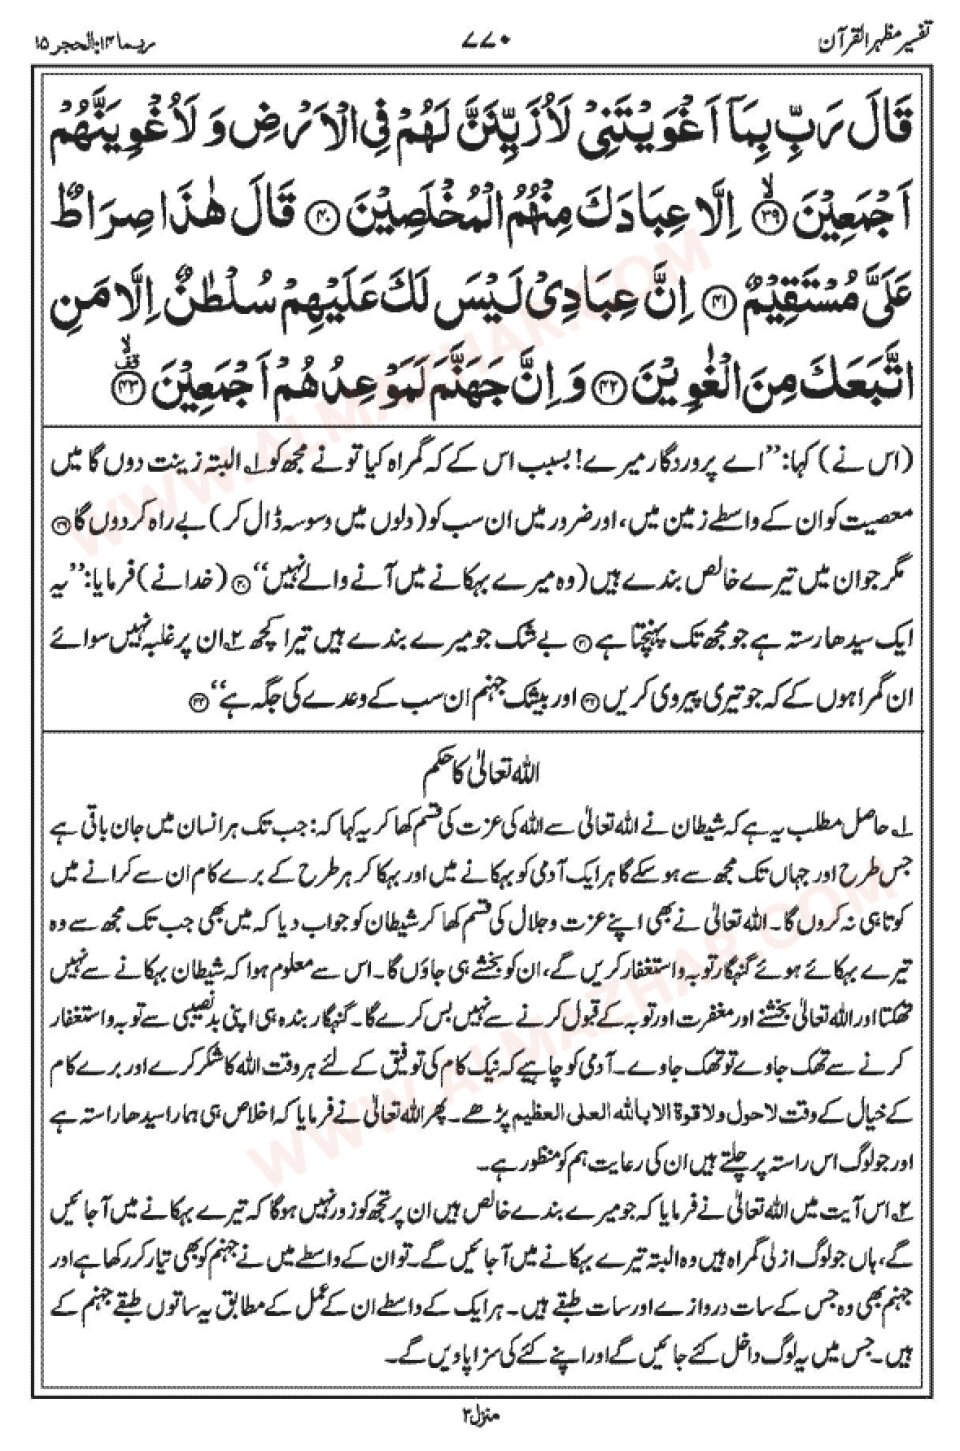 تفسیر مظہر القرآن ۷۷۰ ربما ۱۴: الحجر ۱۵
قَالَ رَبِّ بِمَآ اَغْوَيْتَنِيْ لَاُزَيِّنَنَّ لَهُمْ فِي الْاَرْضِ وَلَاُغْوِيَنَّهُمْ
اَجْمَعِيْنَ ۙ﴿۳۹﴾ اِلَّا عِبَادَكَ مِنْهُمُ الْمُخْلَصِيْنَ ﴿۴۰﴾ قَالَ هٰذَا صِرَاطٌ
عَلَيَّ مُسْتَقِيْمٌ ﴿۴۱﴾ اِنَّ عِبَادِيْ لَيْسَ لَكَ عَلَيْهِمْ سُلْطٰنٌ اِلَّا مَنِ
اتَّبَعَكَ مِنَ الْغٰوِيْنَ ﴿۴۲﴾ وَاِنَّ جَهَنَّمَ لَمَوْعِدُهُمْ اَجْمَعِيْنَ ۙ﴿۴۳﴾
(اس نے) کہا: ”اے پروردگار میرے! بسبب اس کے کہ گمراہ کیا تو نے مجھ کو ۱؎ البتہ زینت دوں گا میں
معصیت کو ان کے واسطے زمین میں، اور ضرور میں ان سب کو (دلوں میں وسوسہ ڈال کر) بے راہ کر دوں گا ﴿۳۹﴾
مگر جو ان میں تیرے خالص بندے ہیں (وہ میرے بہکانے میں آنے والے نہیں“ ﴿۴۰﴾ (خدا نے) فرمایا: ”یہ
ایک سیدھا رستہ ہے جو مجھ تک پہنچتا ہے ﴿۴۱﴾ بے شک جو میرے بندے ہیں تیرا کچھ ۲؎ ان پر غلبہ نہیں سوائے
ان گمراہوں کے کہ جو تیری پیروی کریں ﴿۴۲﴾ اور بیشک جہنم ان سب کے وعدے کی جگہ ہے“ ﴿۴۳﴾
اللہ تعالیٰ کا حکم
۱؎ حاصل مطلب یہ ہے کہ شیطان نے اللہ تعالیٰ سے اللہ کی عزت کی قسم کھا کر یہ کہا کہ: جب تک ہر انسان میں جان باقی ہے
جس طرح اور جہاں تک مجھ سے ہو سکے گا ہر ایک آدمی کو بہکانے میں اور بہکا کر ہر طرح کے برے کام ان سے کرانے میں
کوتاہی نہ کروں گا۔ اللہ تعالیٰ نے بھی اپنے عزت و جلال کی قسم کھا کر شیطان کو جواب دیا کہ میں بھی جب تک مجھ سے وہ
تیرے بہکائے ہوئے گنہگار توبہ و استغفار کریں گے، ان کو بخشے ہی جاؤں گا۔ اس سے معلوم ہوا کہ شیطان بہکانے سے نہیں
تھکتا اور اللہ تعالیٰ بخشنے اور مغفرت اور توبہ کے قبول کرنے سے نہیں بس کرے گا۔ گنہگار بندہ ہی اپنی بدنصیبی سے توبہ و استغفار
کرنے سے تھک جاوے تو تھک جاوے۔ آدمی کو چاہیے کہ نیک کام کی توفیق کے لئے ہر وقت اللہ کا شکر کرے اور برے کام
کے خیال کے وقت لا حول ولا قوة الا بالله العلی العظیم پڑھے۔ پھر اللہ تعالیٰ نے فرمایا کہ اخلاص ہی ہمارا سیدھا راستہ ہے
اور جو لوگ اس راستہ پر چلتے ہیں ان کی رعایت ہم کو منظور ہے۔
۲؎ اس آیت میں اللہ تعالیٰ نے فرمایا کہ جو میرے بندے خالص ہیں ان پر تجھ کو زور نہیں ہوگا کہ تیرے بہکانے میں آ جائیں
گے، ہاں جو لوگ ازلی گمراہ ہیں وہ البتہ تیرے بہکانے میں آ جائیں گے۔ تو ان کے واسطے میں نے جہنم کو بھی تیار کر رکھا ہے اور
جہنم بھی وہ جس کے سات دروازے اور سات طبقے ہیں۔ ہر ایک کے واسطے ان کے عمل کے مطابق یہ ساتوں طبقے جہنم کے
ہیں۔ جس میں یہ لوگ داخل کئے جائیں گے اور اپنے کئے کی سزا پاویں گے۔
منزل ۳
WWW.ALMAZHAR.COM
WWW.ALMAZHAR.COM